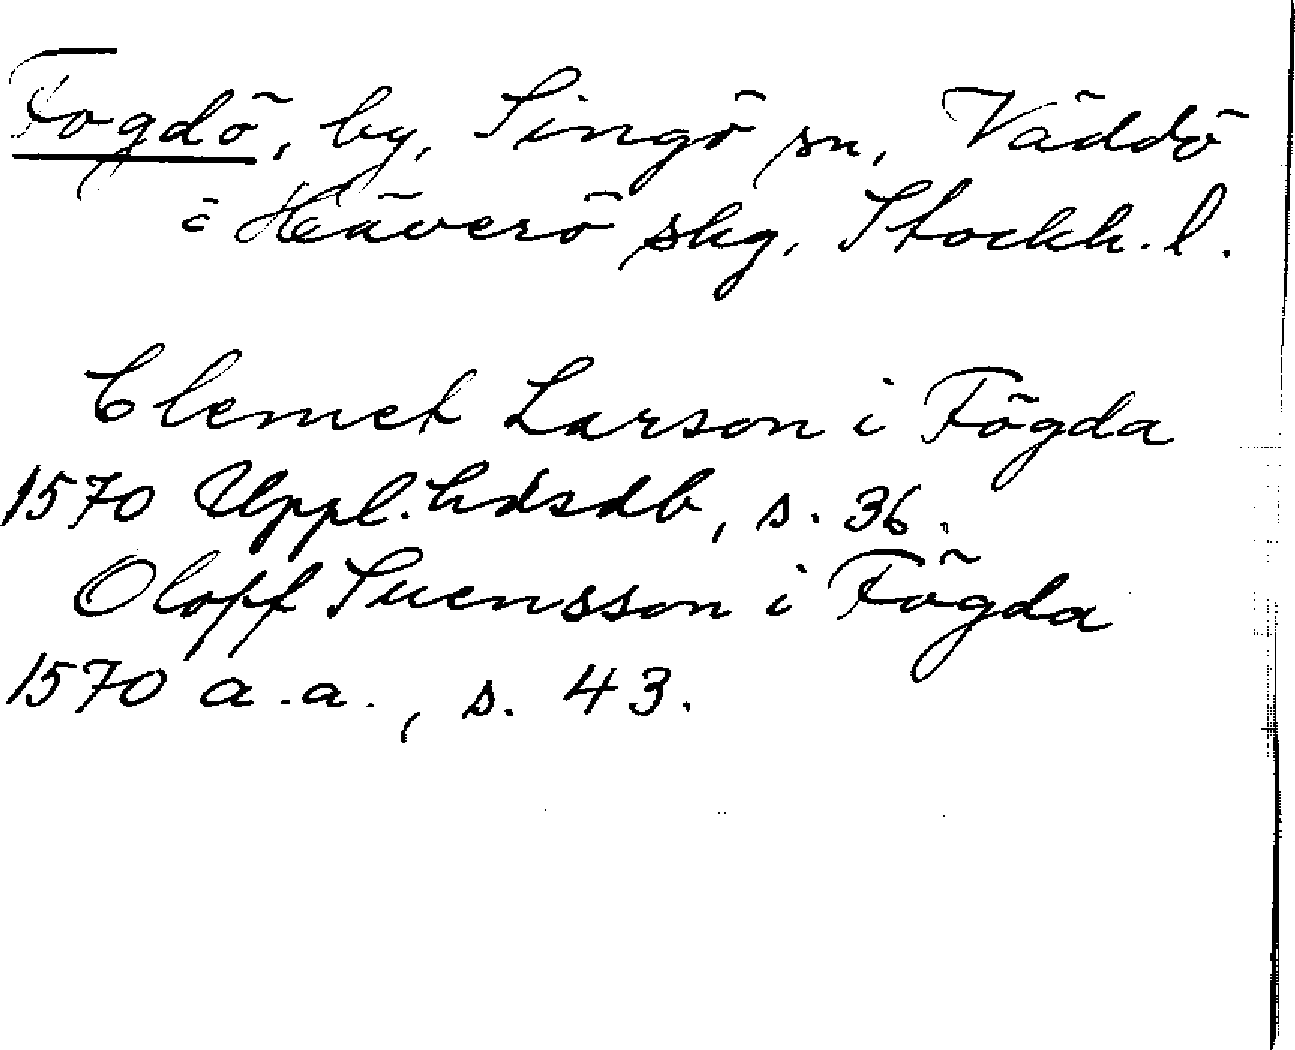 Fogdö, by, Singö sn, Väddö
o Häverö skg, Stockh. l.
Clemet Larson i Fögda
1570 Uppl. hdsdb, s. 36.
Oloff Suensson i Fögda
1570 a.a., s. 43.